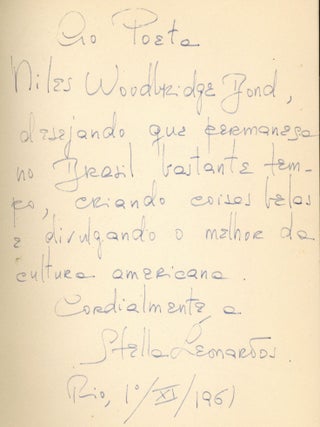 Ao Poeta
Niles Woodbridge Bond,
desejando que permaneça
no Brasil bastante tem-
po, criando coisas belas
e divulgando o melhor da
cultura americana.
Cordialmente, a
Stella Leonardos.
Rio, 1º/XI/1961